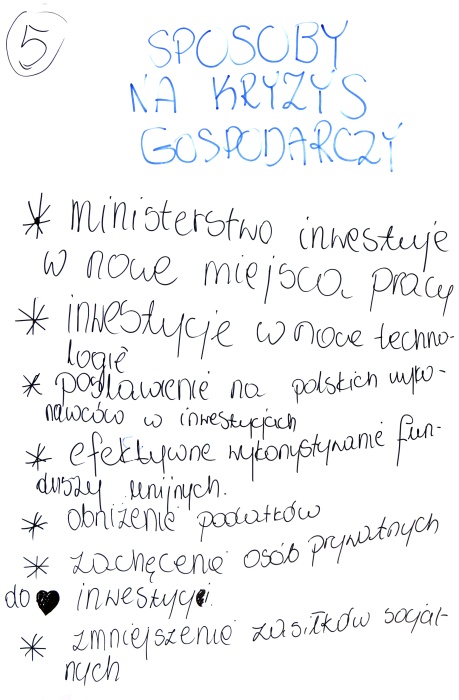 5
SPOSOBY
NA KRYZYS
GOSPODARCZY
* ministerstwo inwestuje
w nowe miejsca pracy
* inwestycje w nowe techno-
logie
* postawienie na polskich wyko-
nawców w inwestycjach
* efektywne wykorzystywanie fun-
duszy unijnych.
* obniżenie podatków
* zachęcenie osób prywatnych
do ♥ inwestycji.
* zmniejszenie zasiłków socjal-
nych